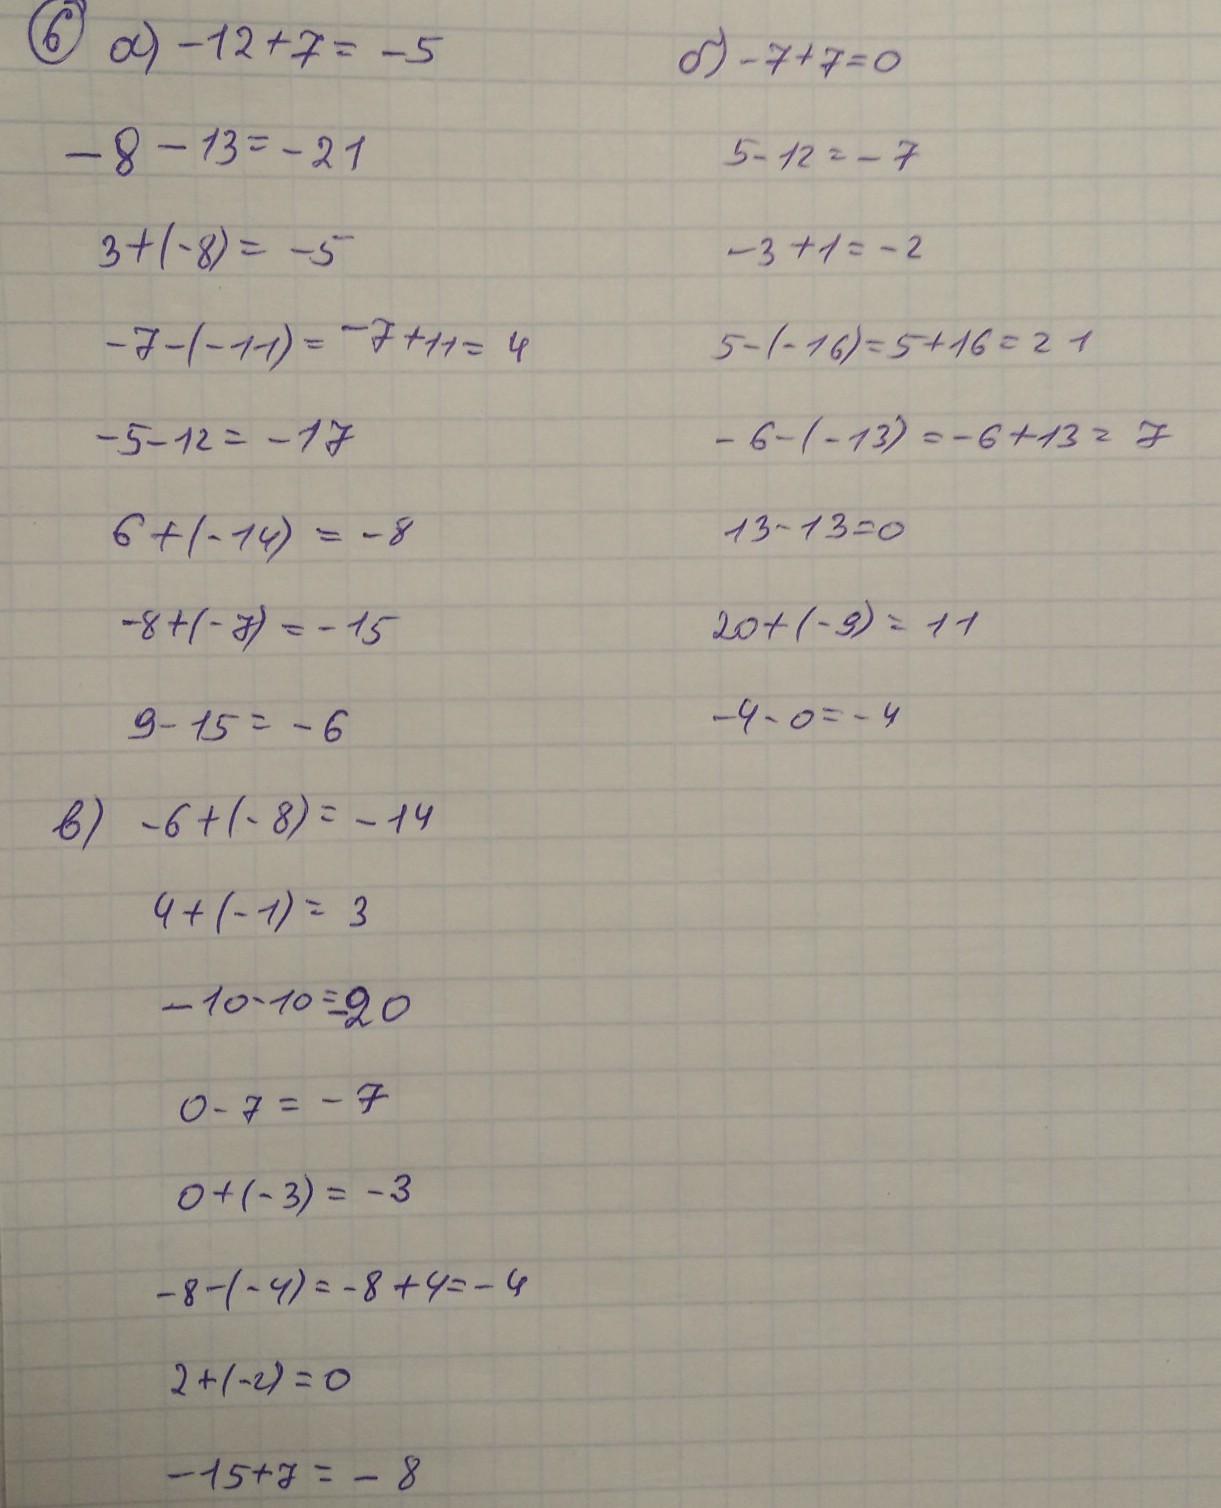 6 а) -12+7= -5
-8-13=-21
3+(-8)= -5
-7-(-11)= -7+11= 4
-5-12= -17
6+(-14) = -8
-8+(-7) = -15
9-15= -6
б) -7+7=0
5-12=-7
-3+1=-2
5-(-16)=5+16=21
-6-(-13) =-6+13= 7
13-13=0
20+(-9)= 11
-4-0=-4
в) -6+(-8)= -14
4+(-1)= 3
-10-10=-20
0-7= -7
0+(-3)= -3
-8-(-4)=-8+4=-4
2+(-2)=0
-15+7= -8